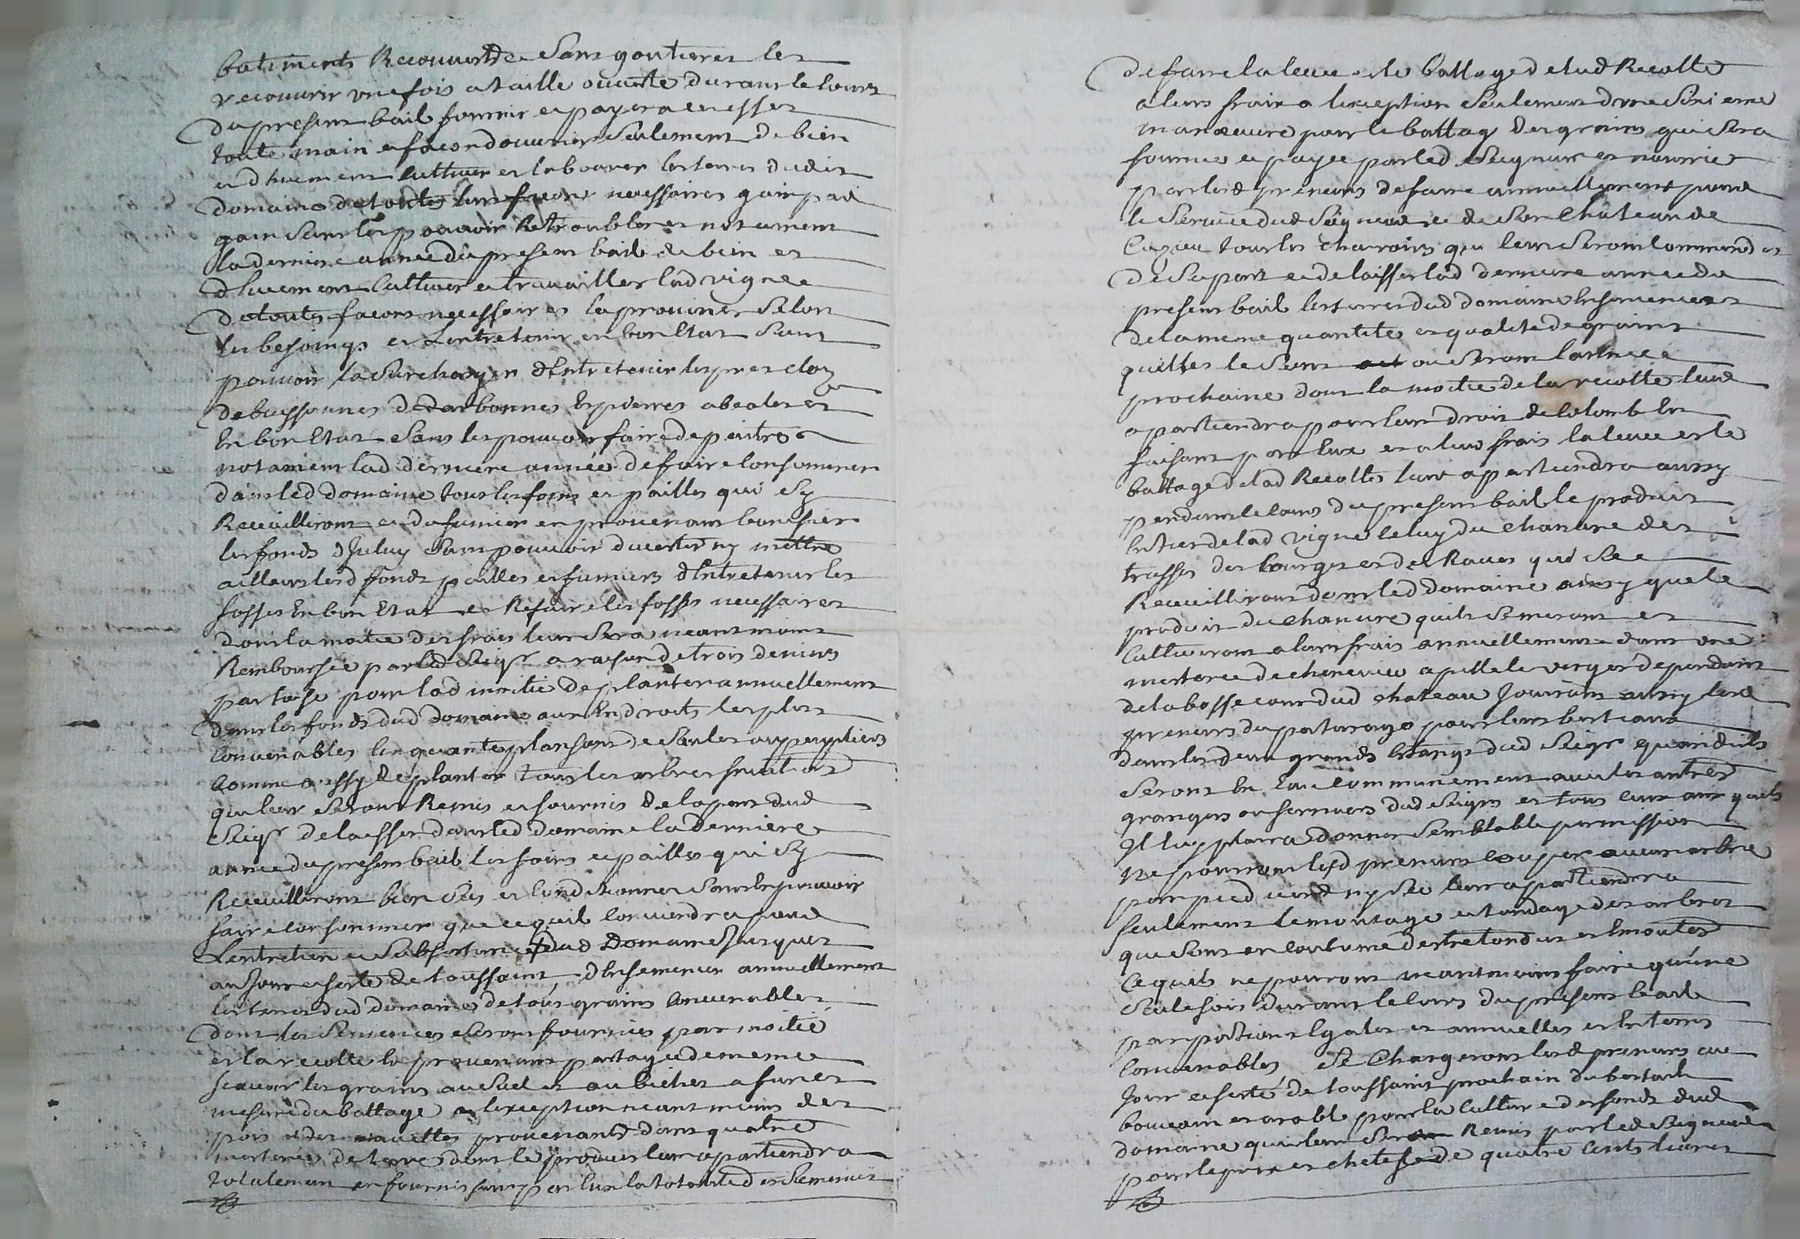 batiments Recouvert de sans goutieres les
recouvrir une fois a taille ouverte durant le cours
du present bail fournir et payer a ces effets
toute main et facon douvrier seulement de bien
et duement cultiver et labourer les terres dudit
domaine de toutes leurs facons necessaires gain par
gain sans les pouvoir Retroubler et notament
la derniere année du present bail de bien et
duement Cultiver et travailler lad vigne
de toutes facons necessaires la proviner selon
les besoings et Lentretenir en bon Etat sans
pouvoir la surcharger dEntretenir les prez cloz
de buissonnes
En bon Etat sans les pouvoir faire depaitre
notament lad derniere année de faire consommer
dans led domaine tous les foins et pailles qui sy
Recueilliront et du fumier en provenant bonifier
les fonds diceluy sans pouvoir divertir ny mettre
ailleurs lesd foins pailles et fumiers dEntretenir les
fosses En bon Etat et Refaire les fosses necessaires
dont la moitie des frais leur sera neantmoins
Remboursée par led Seigr a raison de trois deniers
par toise pour lad moitie de planter annuellement
dans les fonds dud domaine aux Endroits les plus
Convenables cinquante plansons de saules ou peupliers
Comme aussy de planter tous les arbres fruitiers
qui leur seront Remis et fournis de la part dud
Seigr de laisser dans led domaine la derniere
année du present bail les foins et pailles qui sy
Recueilliront bien secs et conditionnes sans En pouvoir
faire consommer que ce quil conviendra pour
Lentretien et subsistance dud Domaine Jusques
au Jour et feste de toussaint, dEnsemencer annuellement
les terres dud domaine de tous grains Convenables
dont les semences seront fournies par moitié
et la recolte En provenant partagée de meme
scavoir les grains au sac et au bichet a furet
mesure du battage a lexception neantmoins des
pois et des navettes provenants dans quatre
mesterées de terre dont le produit leur apartiendra
totalement en fournissant par Eux la totalité des semences
de faire la levée et le battage de lad Recolte
a leurs frais a lexception seulement dune sixieme
manoeuvre pour le battage des grains qui sera
fournie et payée par led Seigneur et nourrie
par lesd preneurs de faire annuellement pour
le service dud Seigneur et de son chateau de
tous les charrois qui leur seront commendes
de sa part et de laisser lad derniere année du
present bail les terres dud domaine Ensemencées
de la meme quantité et qualite de grains
quelles le sont ou seront lannée
prochaine dont la moitié de la recolte leur
apartiendra pour leur droit de colomb En
faisant par Eux et a leurs frais la levée et le
battage de lad Recolte leur apartiendra aussy
pendant le cours du present bail le produit
Entier de lad vigne celuy du chanvre des
truffes des Courges et des Raves qui se
Recueilliront dans led domaine ainsy que le
produit du chanvre quils semeront et
Cultiveront a leurs frais annuellement dans une
mesterée de cheneviere apellé le verger dependant
de la basse cour dud chateau Jouiront aussy lesd
preneurs du paturage pour leurs bestiaux
dans les deux grands Etangs dud Seigr quand ils
seront En Eau communement avec les autres
grangers ou fermiers dud Seigr et tous ceux aux quels
Il luy plaira donner semblable permission
Ne pourront lesd preneurs couper aucun arbre
par pied verd ny sec leur apartiendra
seulement lemontage et tondage des arbres
que sont en coutume dEstre tondus et Emontés
Ce quils ne pourront neantmoins faire quúne
seule fois durant le cours du present bail
par portions Egales et annuelles et En tems
Convenables Se Chargeront lesd preneurs au
Jour et feste de toussaint prochain du bestail
bouvain et arable pour la culture des fonds dud
domaine qui leur sera Remis par led Seigneur
pour le prix et cheteil de quatre Cents livres